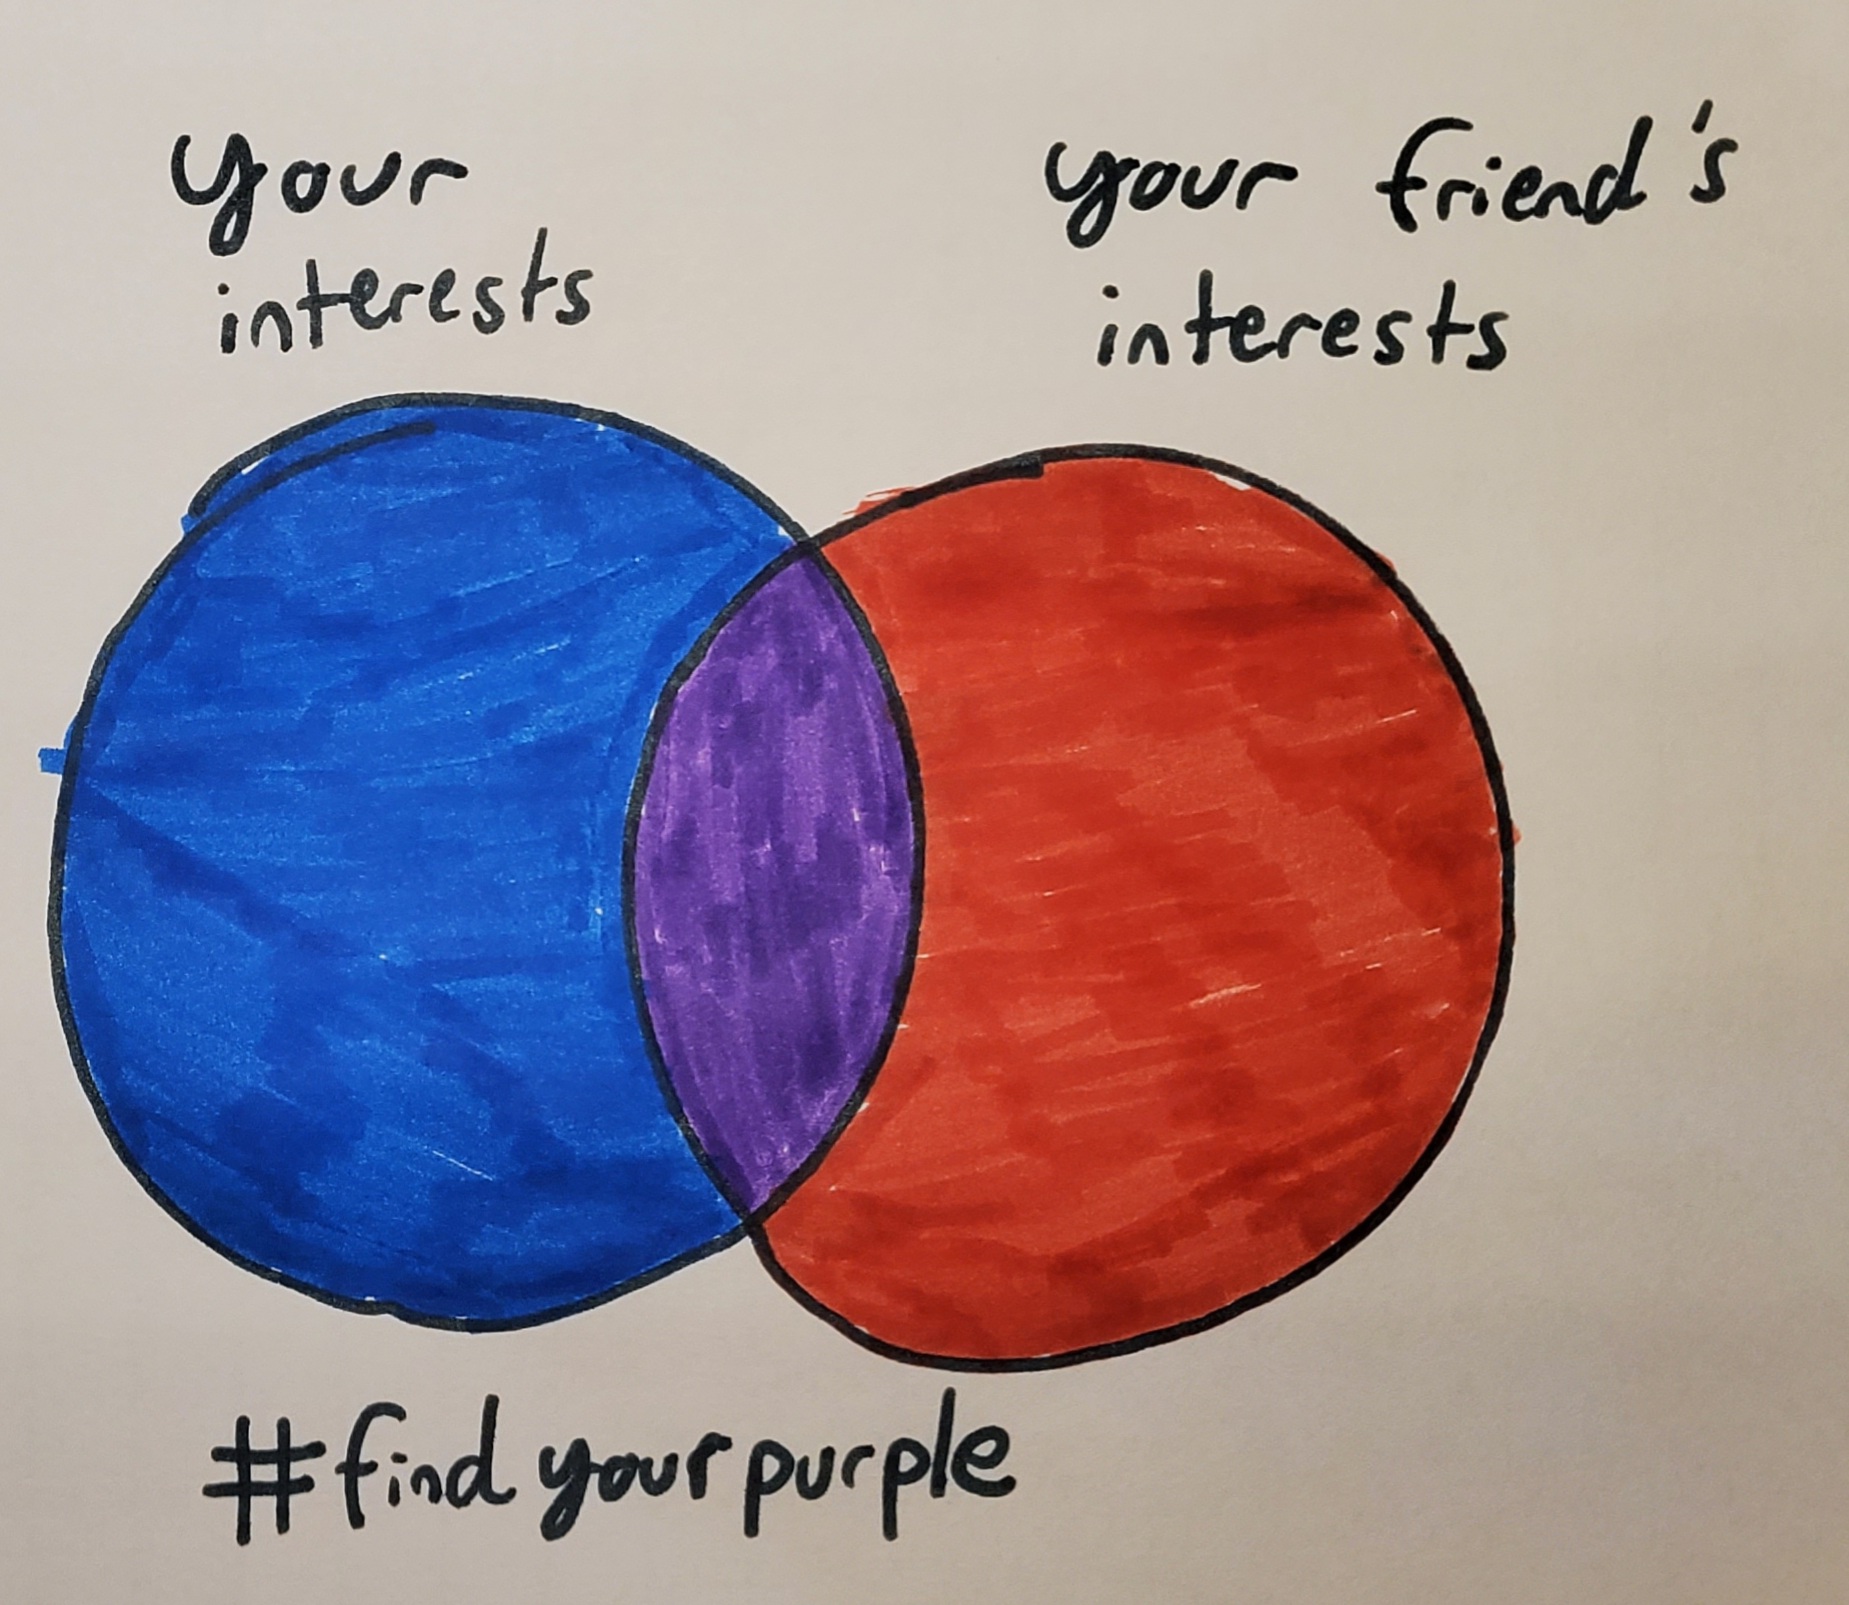 your
interests
your friend's
interests
#findyourpurple